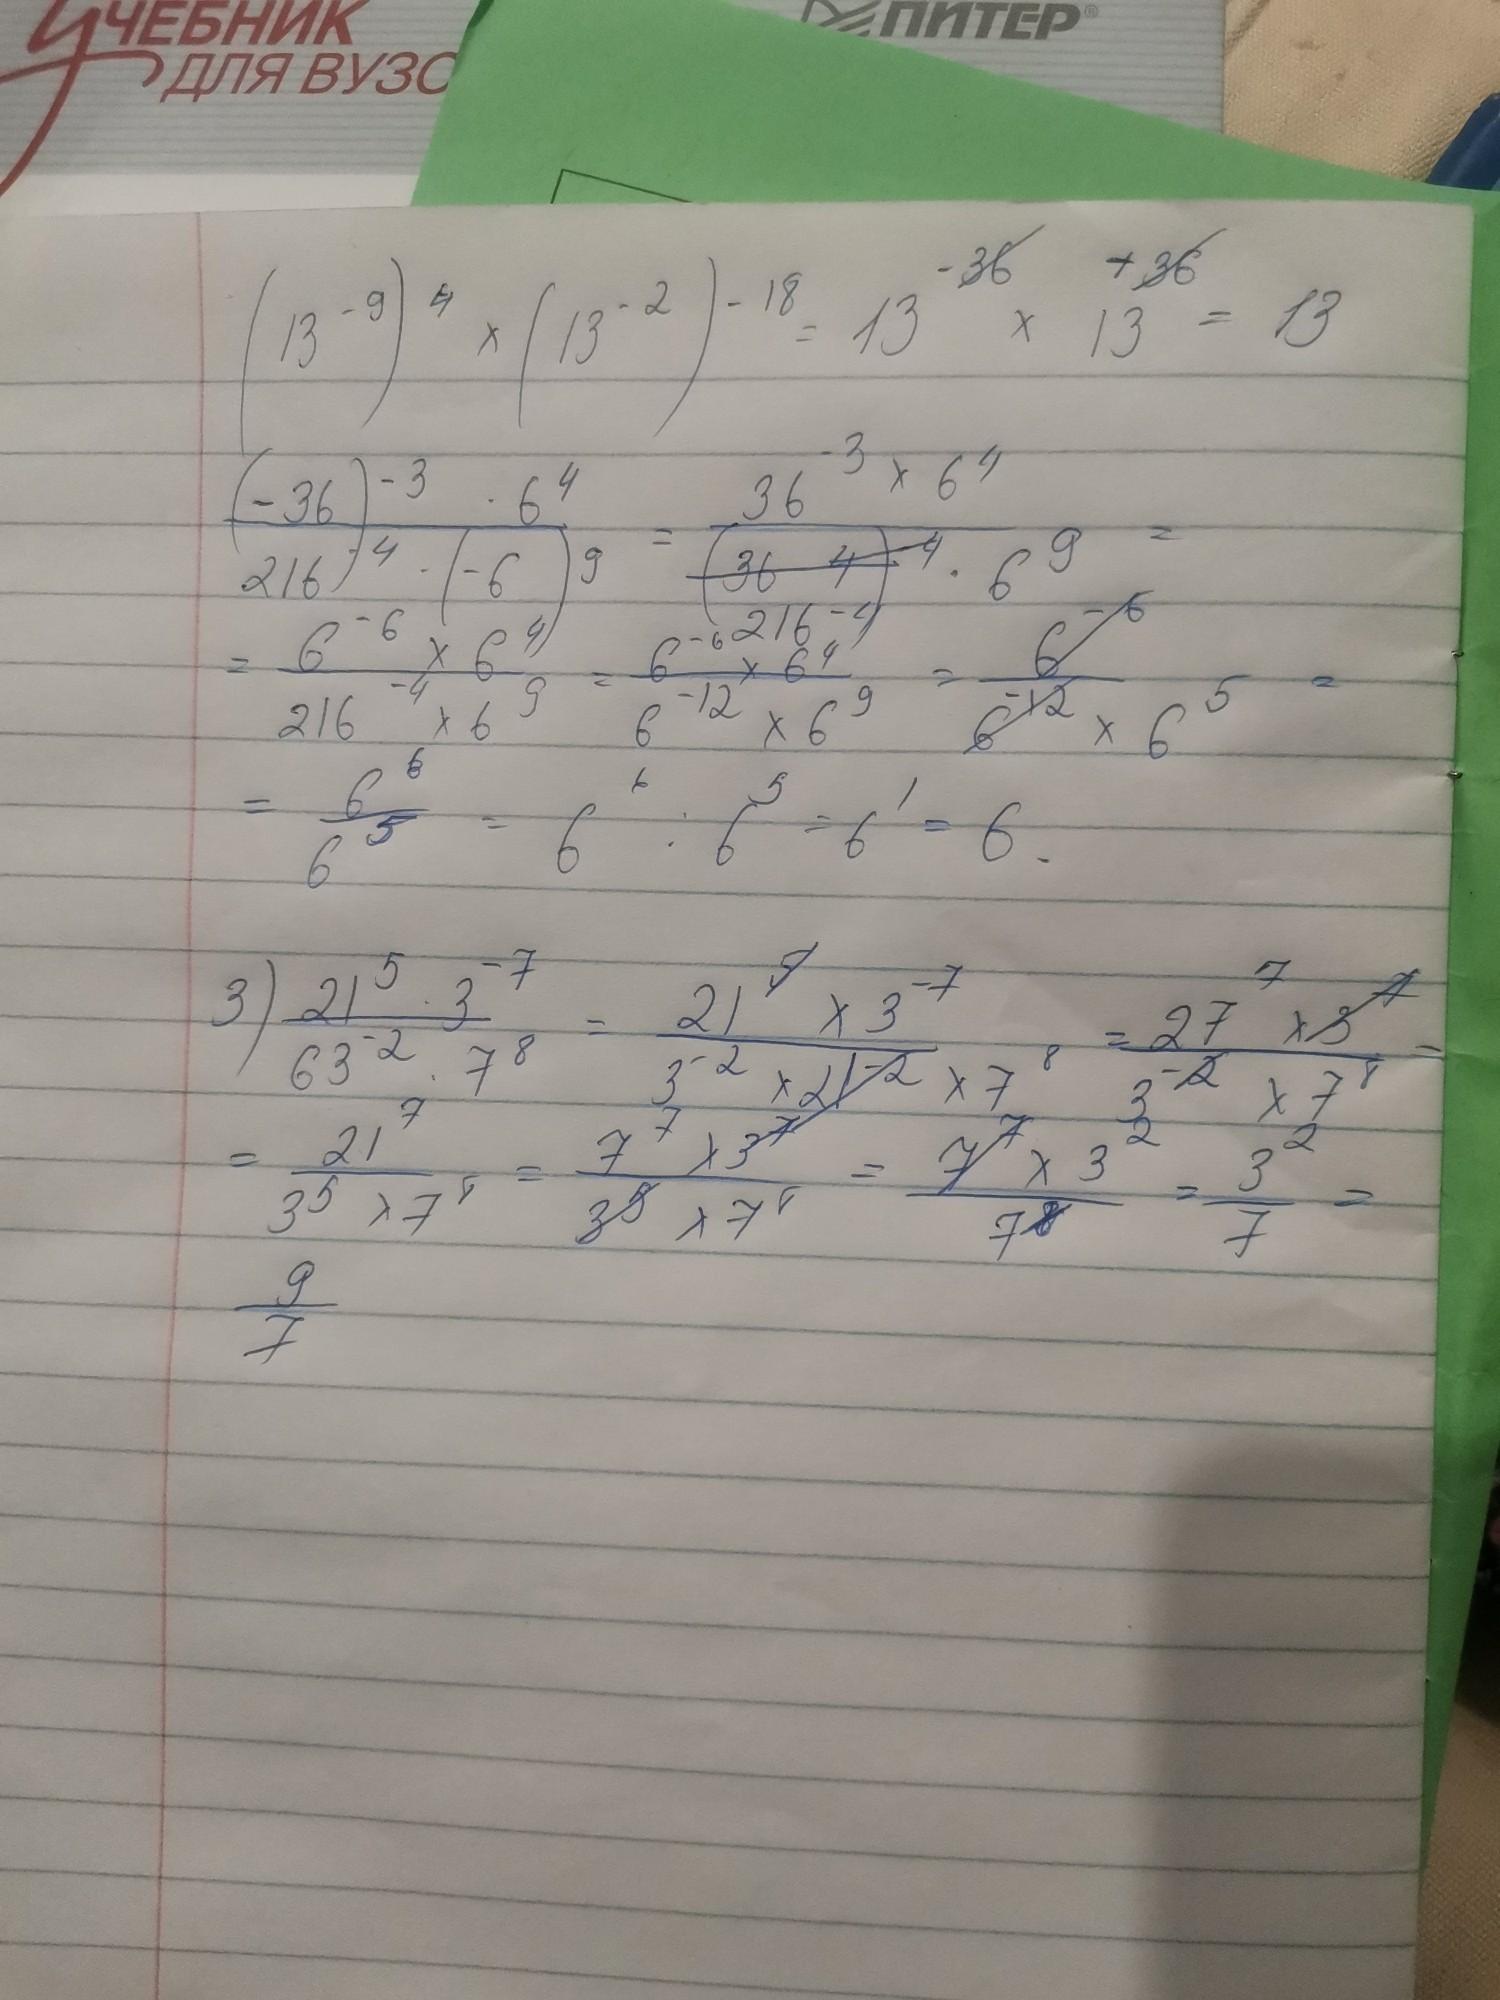 УЧЕБНИК
ДЛЯ ВУЗО
ПИТЕР®
(13⁻⁹)⁴ × (13⁻²)⁻¹⁸ = 13⁻³⁶ × 13⁺³⁶ = 13
(-36)⁻³ · 6⁴ / 216⁻⁴ · (-6)⁹ = 36⁻³ × 6⁴ / (36 4)⁻⁴ 216⁻⁴ · 6⁹ =
= 6⁻⁶ × 6⁴ / 216⁻⁴ × 6⁹ = 6⁻⁶ × 6⁴ / 6⁻¹² × 6⁹ = 6⁻⁶ / 6⁻¹² × 6⁵ =
= 6⁶ / 6⁵ = 6⁶ : 6⁵ = 6¹ = 6.
3) 21⁵ · 3⁻⁷ / 63⁻² · 7⁸ = 21⁵ × 3⁻⁷ / 3⁻² × 21⁻² × 7⁸ = 27⁷ × 3⁻⁷ / 3⁻² × 7⁸ =
= 21⁷ / 3⁵ × 7⁸ = 7⁷ × 3⁷ / 3⁵ × 7⁸ = 7⁷ × 3² / 7⁸ = 3² / 7 =
9 / 7